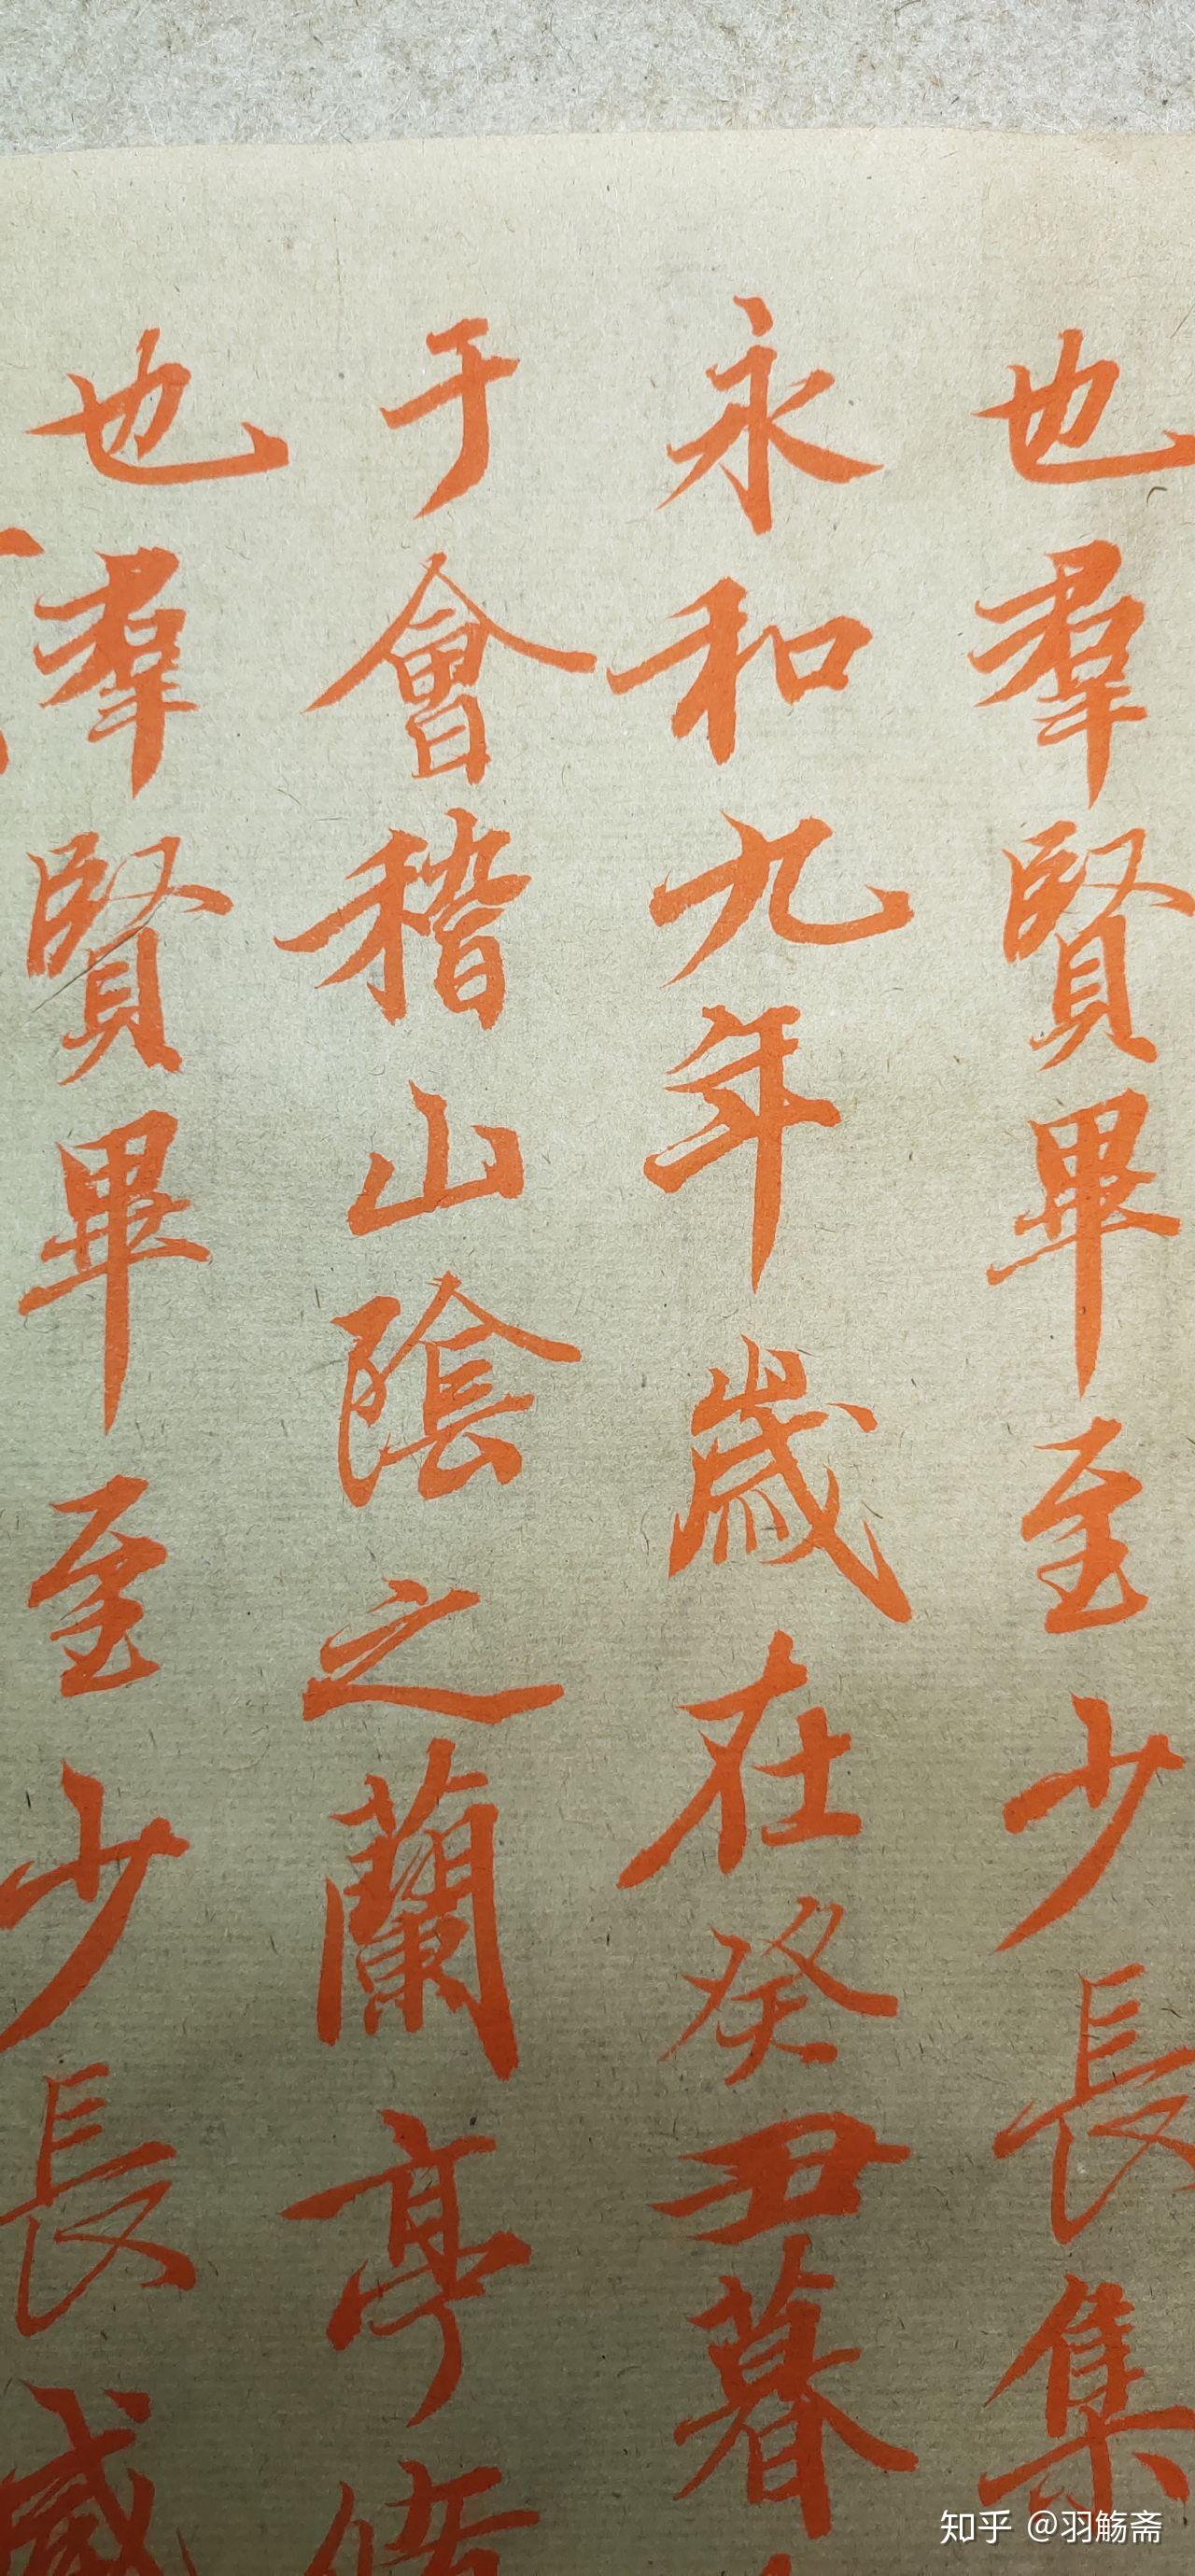 也羣賢畢至少長集
永和九年歲在癸丑暮
于會稽山陰之蘭亭脩
也羣賢畢至少長咸
知乎 @羽觞斋